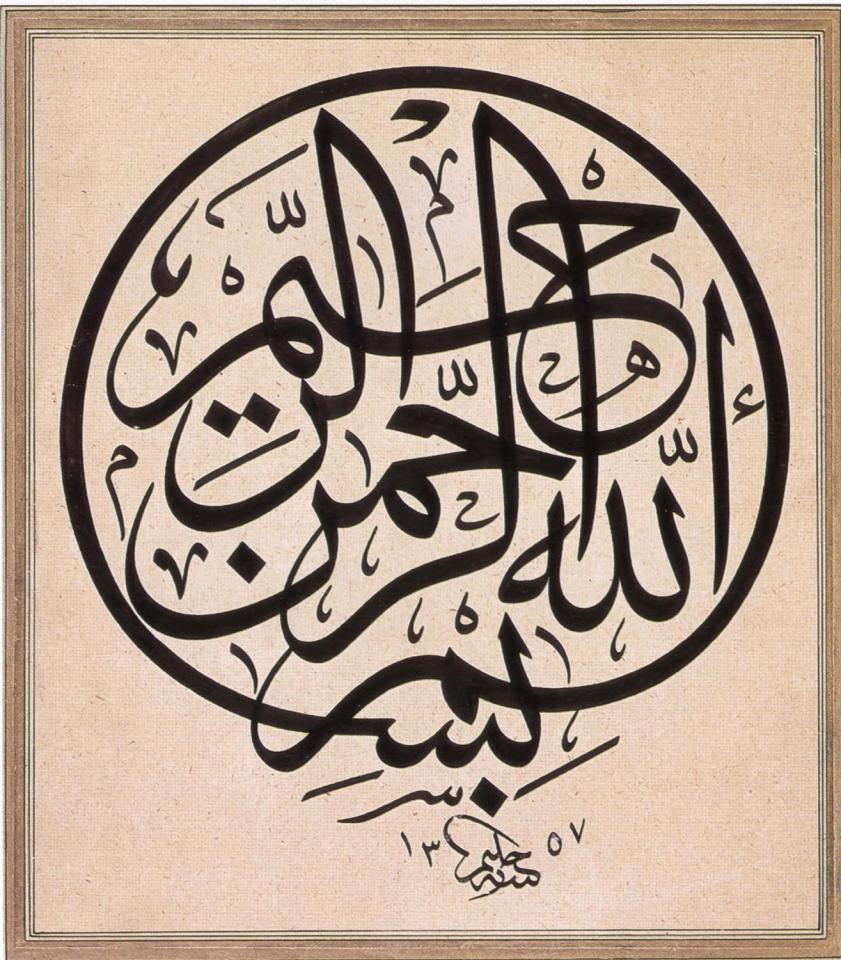 بِسْمِ اللَّهِ الرَّحْمٰنِ الرَّحِيمِ
حليم
١٣٥٧